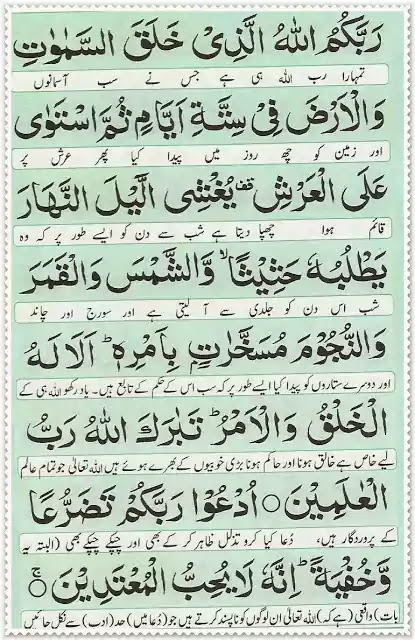 رَبَّكُمُ اللهُ الَّذِىْ خَلَقَ السَّمٰوٰتِ
تمہارا رب اللہ ہی ہے جس نے سب آسمانوں
وَالْاَرْضَ فِىْ سِتَّةِ اَيَّامٍ ثُمَّ اسْتَوٰى
اور زمین کو چھ روز میں پیدا کیا پھر عرش پر
عَلَى الْعَرْشِ قف يُغْشِى الَّيْلَ النَّهَارَ
قائم ہوا چھپا دیتا ہے شب سے دن کو ایسے طور پر کہ وہ
يَطْلُبُهٗ حَثِيْثًا ۙ وَّالشَّمْسَ وَالْقَمَرَ
شب اس دن کو جلدی سے آ لیتی ہے اور سورج اور چاند
وَالنُّجُوْمَ مُسَخَّرٰتٍ بِاَمْرِهٖ ؕ اَلَا لَهُ
اور دوسرے ستاروں کو پیدا کیا ایسے طور پر کہ سب اس کے حکم کے تابع ہیں۔ یاد رکھو اللہ ہی کے
الْخَلْقُ وَالْاَمْرُ ؕ تَبٰرَكَ اللهُ رَبُّ
لیے خاص ہے خالق ہونا اور حاکم ہونا بڑی خوبیوں کے بھرے ہوئے ہیں اللہ تعالیٰ جو تمام عالم
الْعٰلَمِيْنَ ○ اُدْعُوْا رَبَّكُمْ تَضَرُّعًا
کے پروردگار ہیں، دُعا کیا کرو تذلل ظاہر کر کے بھی اور چپکے چپکے بھی (البتہ یہ
وَّخُفْيَةً ؕ اِنَّهٗ لَا يُحِبُّ الْمُعْتَدِيْنَ ○ ۚ
بات) واقعی (ہے کہ) اللہ تعالیٰ ان لوگوں کو ناپسند کرتے ہیں جو (دُعا میں) حد (ادب) سے نکل جائیں